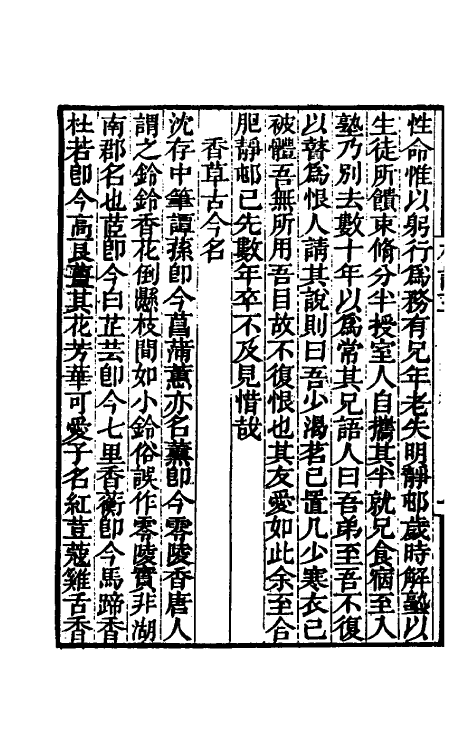 性命惟以躬行爲務有兄年老失明靜邨歲時解塾以
生徒所饋束脩分半授室人自攜其半就兄食宿至入
塾乃別去數十年以爲常其兄語人曰吾弟至吾不復
以瞽爲恨人請其說則曰吾少渴茗已置几少寒衣已
被體吾無所用吾目故不復恨也其友愛如此余至合
肥靜邨已先數年卒不及見惜哉
香草古今名
沈存中筆譚蓀卽今菖蒲蕙亦名薰卽今零陵香唐人
謂之鈴鈴香花倒懸枝間如小鈴俗誤作零陵實非湖
南郡名也茝卽今白芷芸卽今七里香蘅卽今馬蹄香
杜若卽今高良薑其花芳華可愛子名紅荳蔻雞舌香